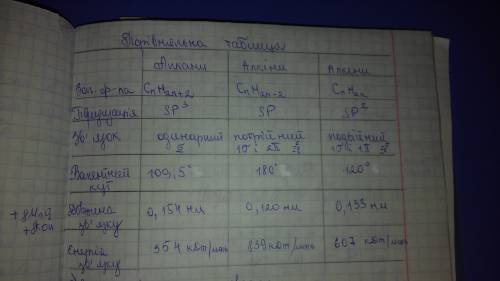 Порівняльна таблиця
Алкани Алкіни Алкени
Заг. ф-ла CnH2n+2 CnH2n-2 CnH2n
Гібридизація SP³ SP SP²
Зв'язок одинарний потрійний подвійний
1σ і 2π 1σ і 1π
Валентний кут 109,5° 180° 120°
Довжина зв'язку 0,154 нм 0,120 нм 0,133 нм
Енергія зв'язку 354 кДж/моль 839 кДж/моль 607 кДж/моль